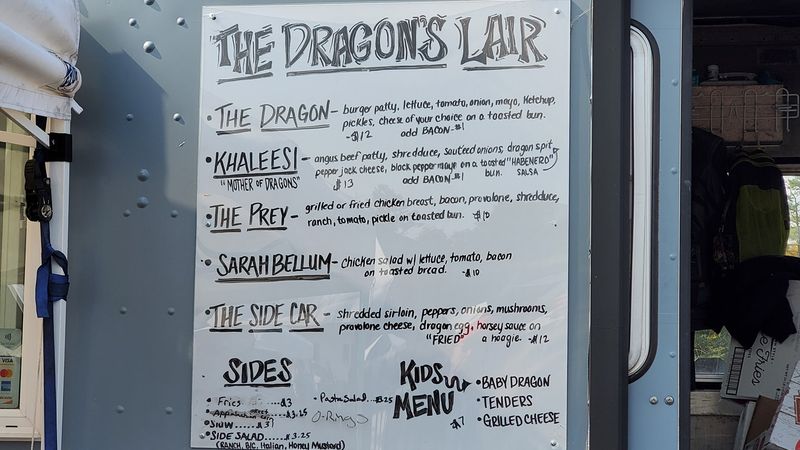 THE DRAGON'S LAIR
• THE DRAGON - burger patty, lettuce, tomato, onion, mayo, ketchup,
pickles, cheese of your choice on a toasted bun.
-$12 add BACON-$1
• KHALEESI - angus beef patty, shredduce, sauteed onions, dragon spit
"MOTHER OF DRAGONS" pepper jack cheese, black pepper mayo on a toasted "HABENERO"
$13 add BACON $1 bun. SALSA
• THE PREY - grilled or fried chicken breast, bacon, provolone, shredduce,
ranch, tomato, pickle on toasted bun. -$10
• SARAH BELLUM - chicken salad w/ lettuce, tomato, bacon
on toasted bread. -$10
• THE SIDE CAR - shredded sirloin, peppers, onions, mushrooms,
provolone cheese, dragon egg, horsey sauce on
"FRIED" a hoagie. -$12
SIDES
• Fries $3
$3.25
• SLAW....$3
• SIDE SALAD......$3.25
(RANCH, B/C, Italian, Honey Mustard)
• Pasta Salad....$3.25
O-Rings
KIDS
MENU
$7
• BABY DRAGON
• TENDERS
• GRILLED CHEESE
VISA
Fries